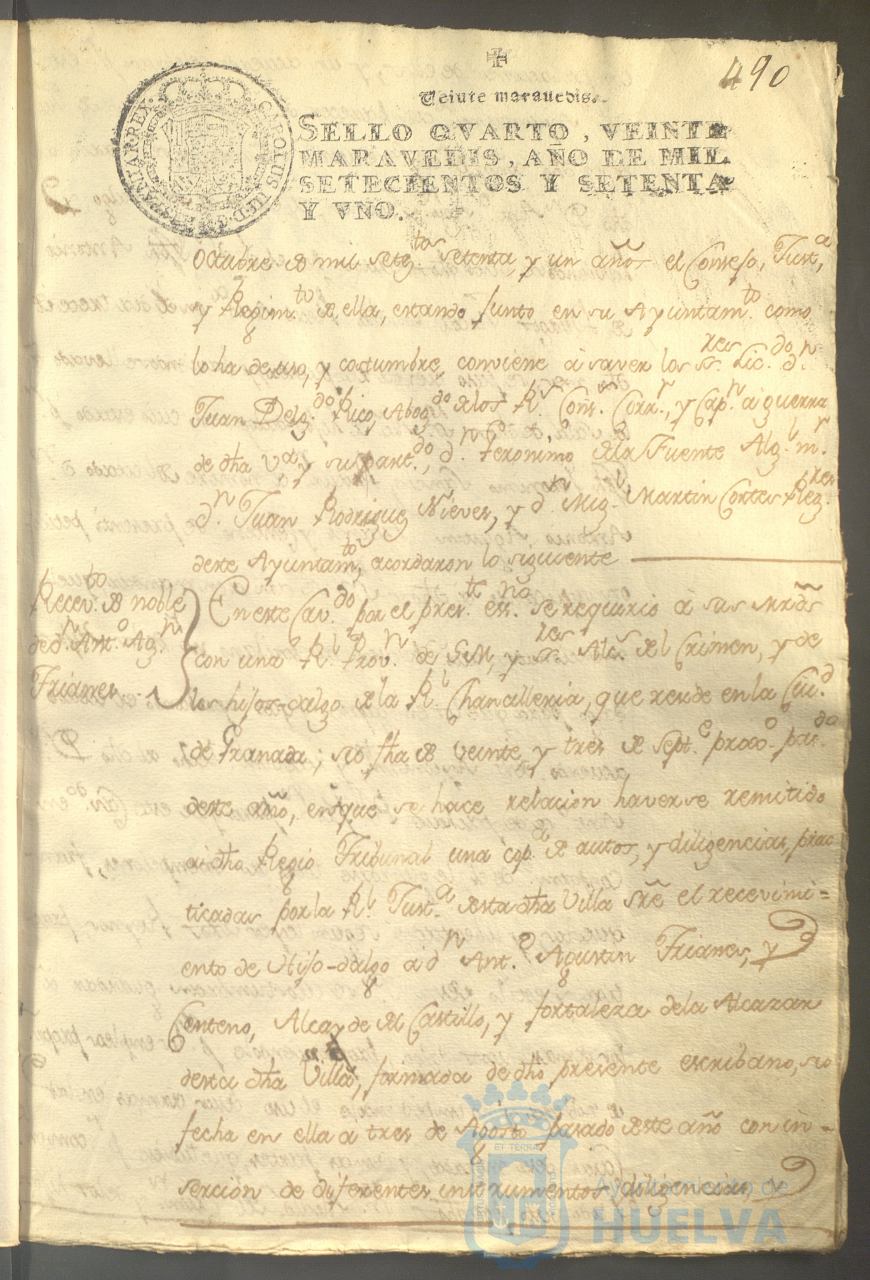 490
Veinte maravedis.
SELLO QVARTO, VEINTE
MARAVEDIS, AÑO DE MIL
SETECIENTOS Y SETENTA
Y VNO.
CAROLUS III D G HISPANIAR REX
Octubre de mil setez.tos setenta, y un años el Consejo, Just.a
y Regim.to de ella, estando junto en su Ayuntam.to como
lo ha de uso, y costumbre, conviene à saver los ss.res Lic.do d.n
Juan Delg.do Rico, Abog.do de los R.s Cons.s Corr.r, y Cap.n à guerra
de dha V.a y su part.do, d.n Geronimo de la Fuente Alg.l m.r
d.n Juan Rodriguez Nieves, y d.n Mig.l Martin Cortes Reg.res
deste Ayuntam.to, acordaron lo siguiente
Recev.to de noble
de d.n Ant.o Ag.n
Frianes
En este Cav.do por el pres.te ess.no se requirio à sus mrds
con una R.l Prov.n de S.M. y ss.res Alc.s del Crimen, y de
los hijos-dalgo de la R.l Chancilleria, que reside en la Ciu.d
de Granada; su fha de veinte, y tres de Sept.e proxo. pas.do
deste año, en que se hace relacion haverse remitido
a dho Regio Tribunal una cop.a de autos, y diligencias, prac
ticadas por la R.l Just.a desta dha Villa sre el recevimi=
ento de Hijo-dalgo a d.n Ant.o Agustin Frianes, y
Centeno, Alcayde del Castillo, y fortaleza de la Alcazar
desta dha Villa, formada de dho presente escribano, su
fecha en ella a tres de Agosto pasado deste año con in=
serción de diferentes instrumentos, diligencias, y
ET TERRAE
Ayuntamiento de
HUELVA